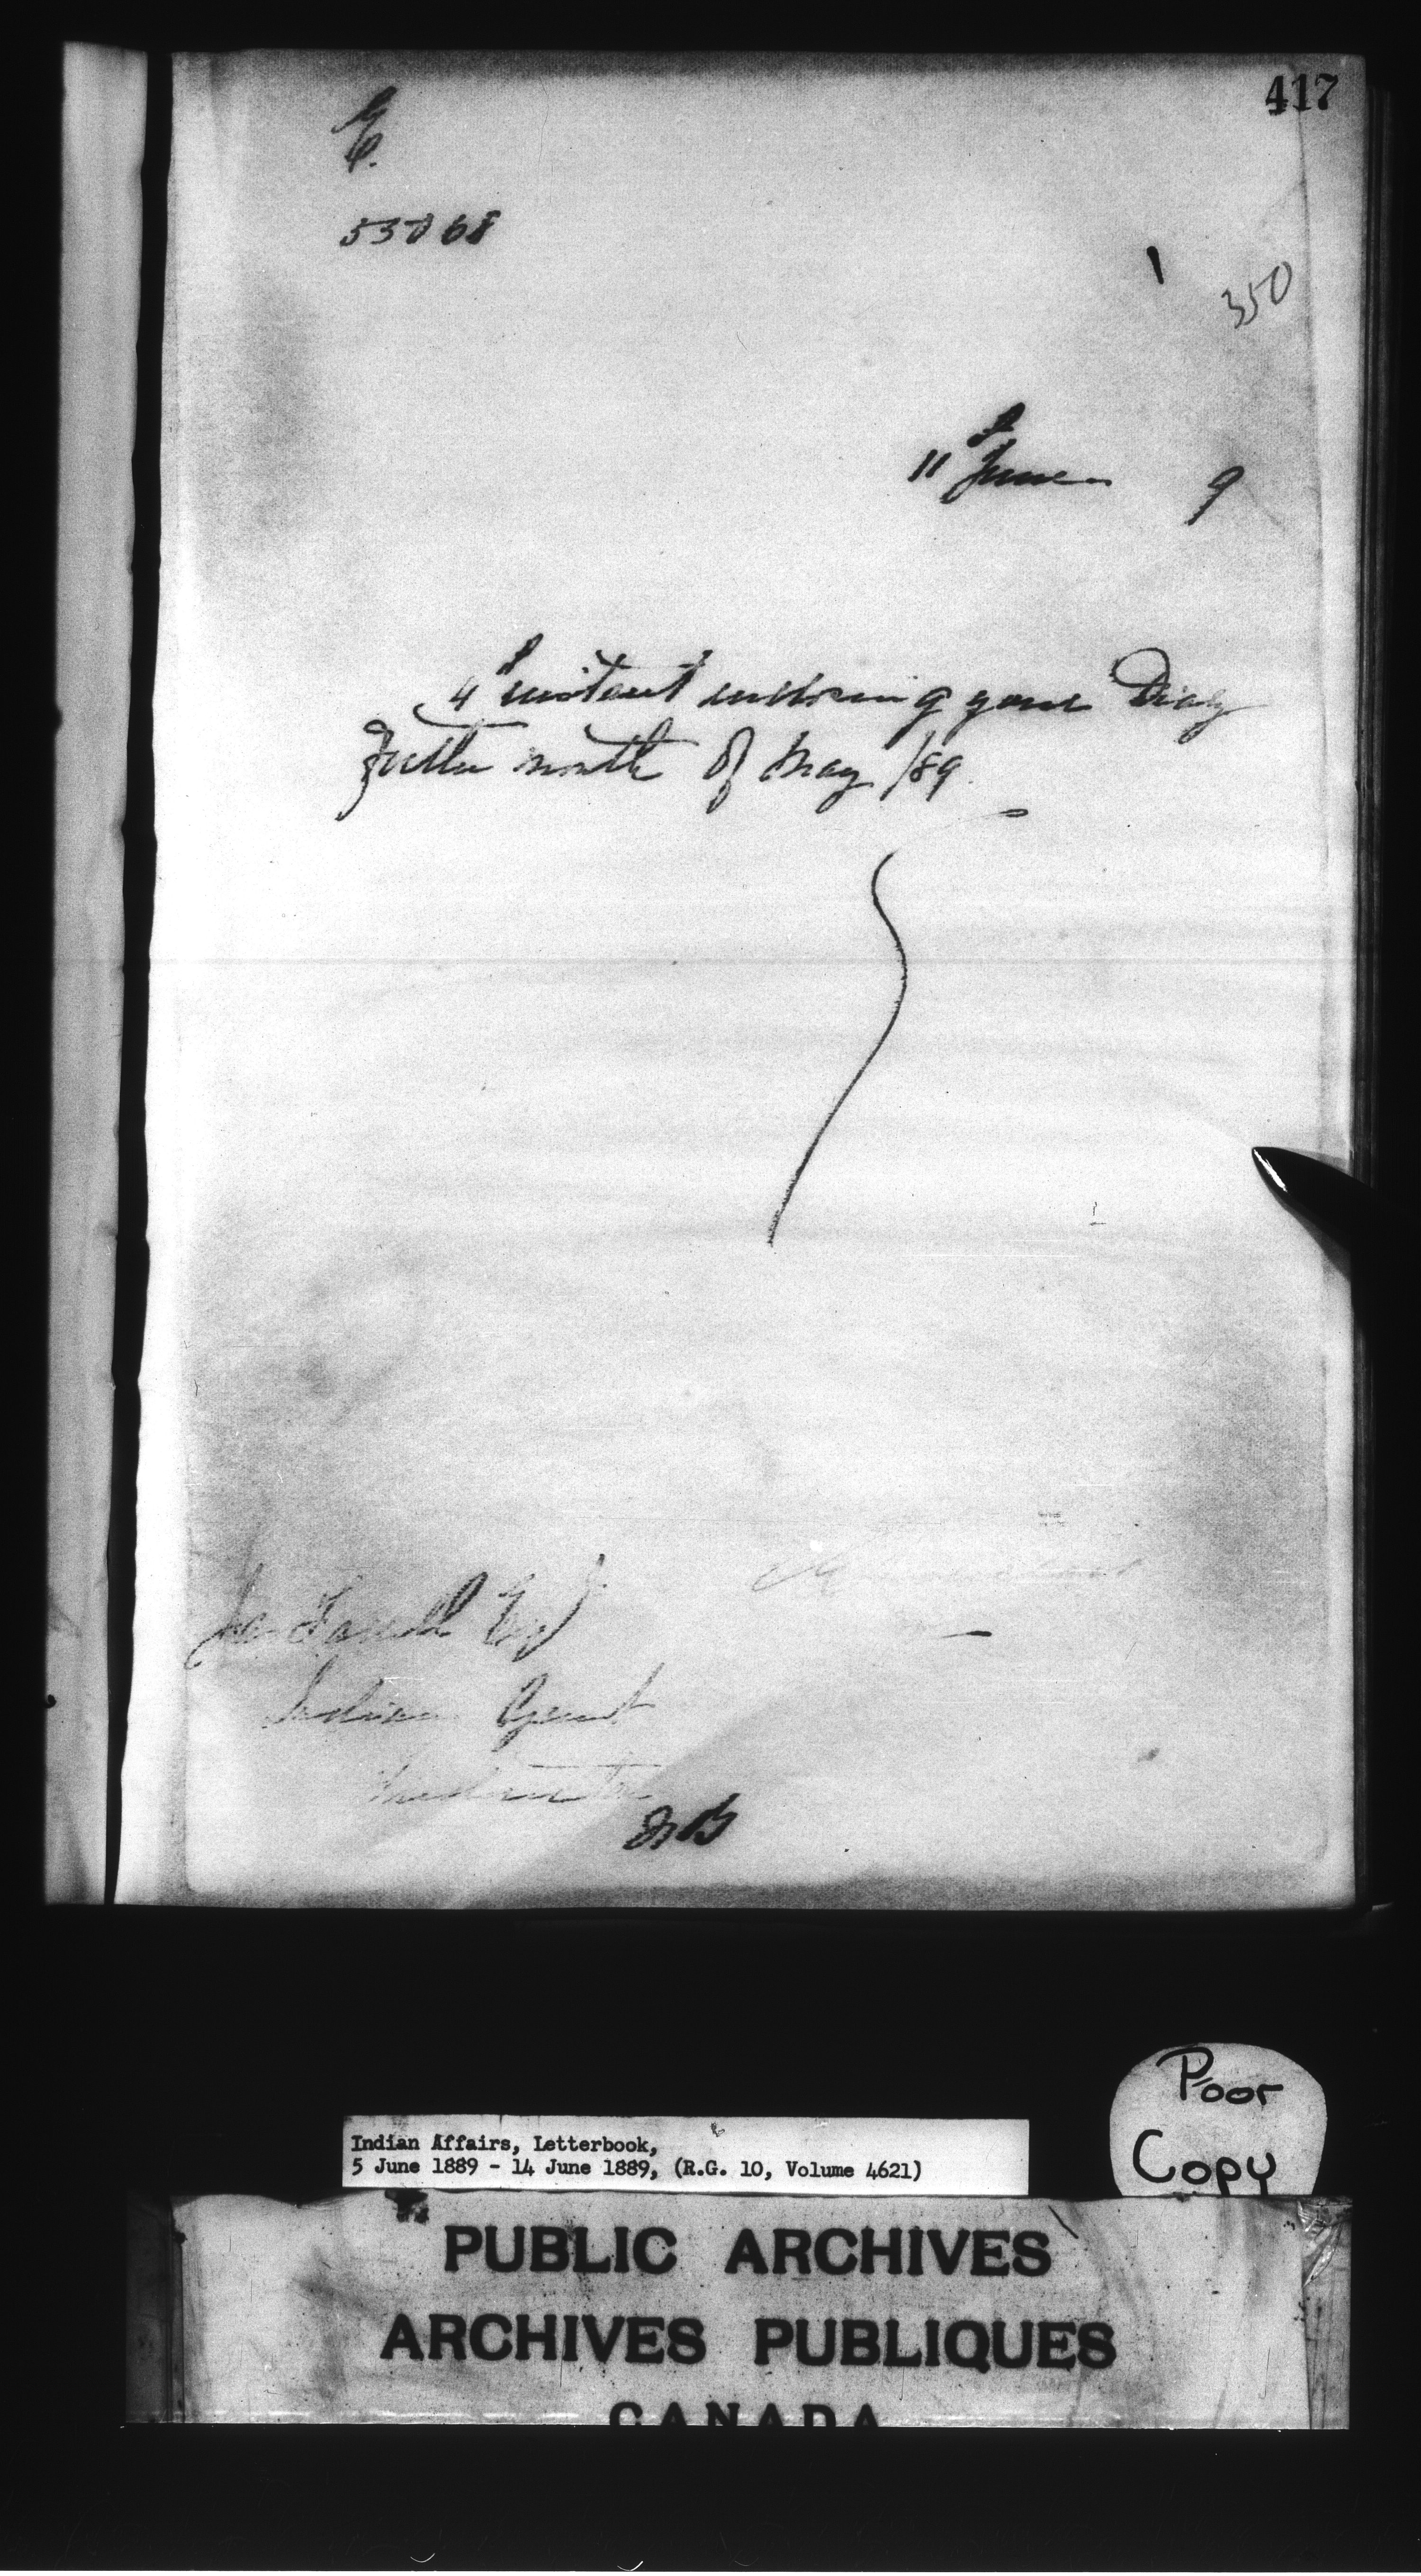 417
E.
55068
350
11th June 9
4th instant enclosing your Diary
for the month of May /89
Jas Farrell Esq
Indian Agent
Fredericton
NB
Poor
Copy
Indian Affairs, Letterbook,
5 June 1889 - 14 June 1889, (R.G. 10, Volume 4621)
PUBLIC ARCHIVES
ARCHIVES PUBLIQUES
CANADA